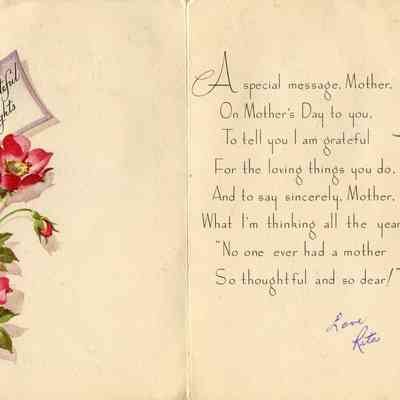 A special message, Mother,
On Mother's Day to you,
To tell you I am grateful
For the loving things you do,
And to say sincerely, Mother,
What I'm thinking all the year
"No one ever had a mother
So thoughtful and so dear!"
Love
Rita